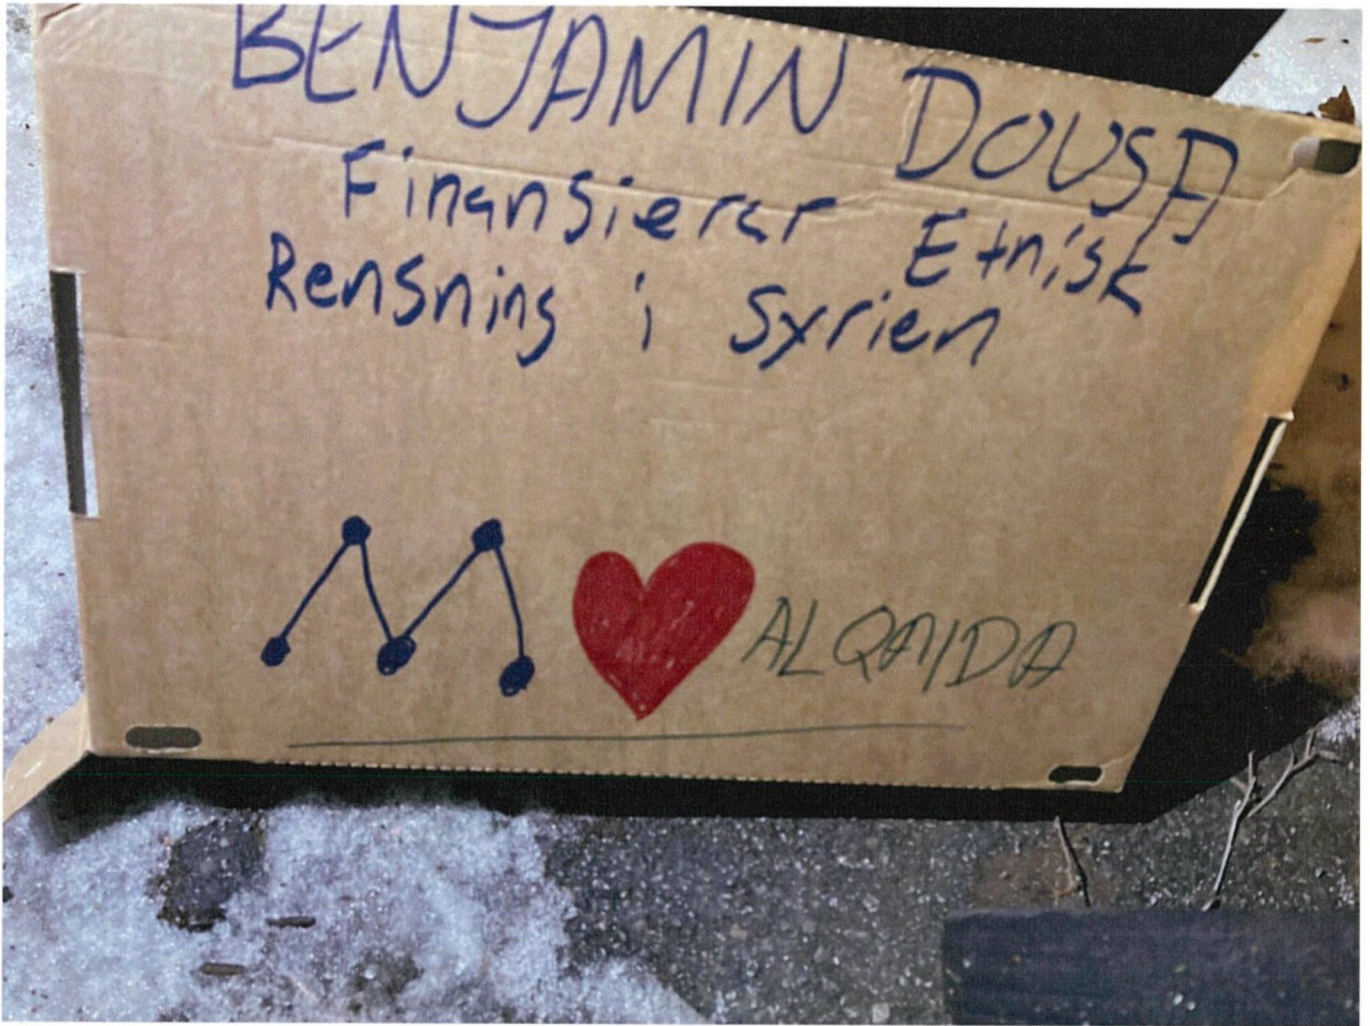 BENJAMIN DOUSA
Finansierar Etnisk
Rensning i Syrien
M ♥ ALQAIDA